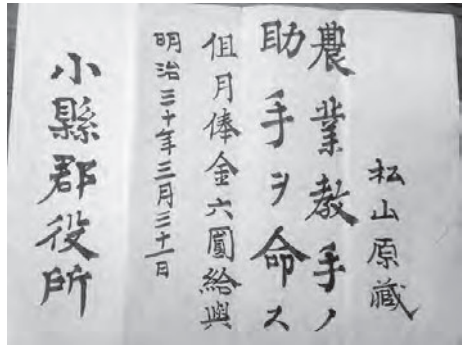 松山原藏
農業教手ノ
助手ヲ命ス
但月俸金六圓給與
明治三十年三月三十一日
小縣郡役所